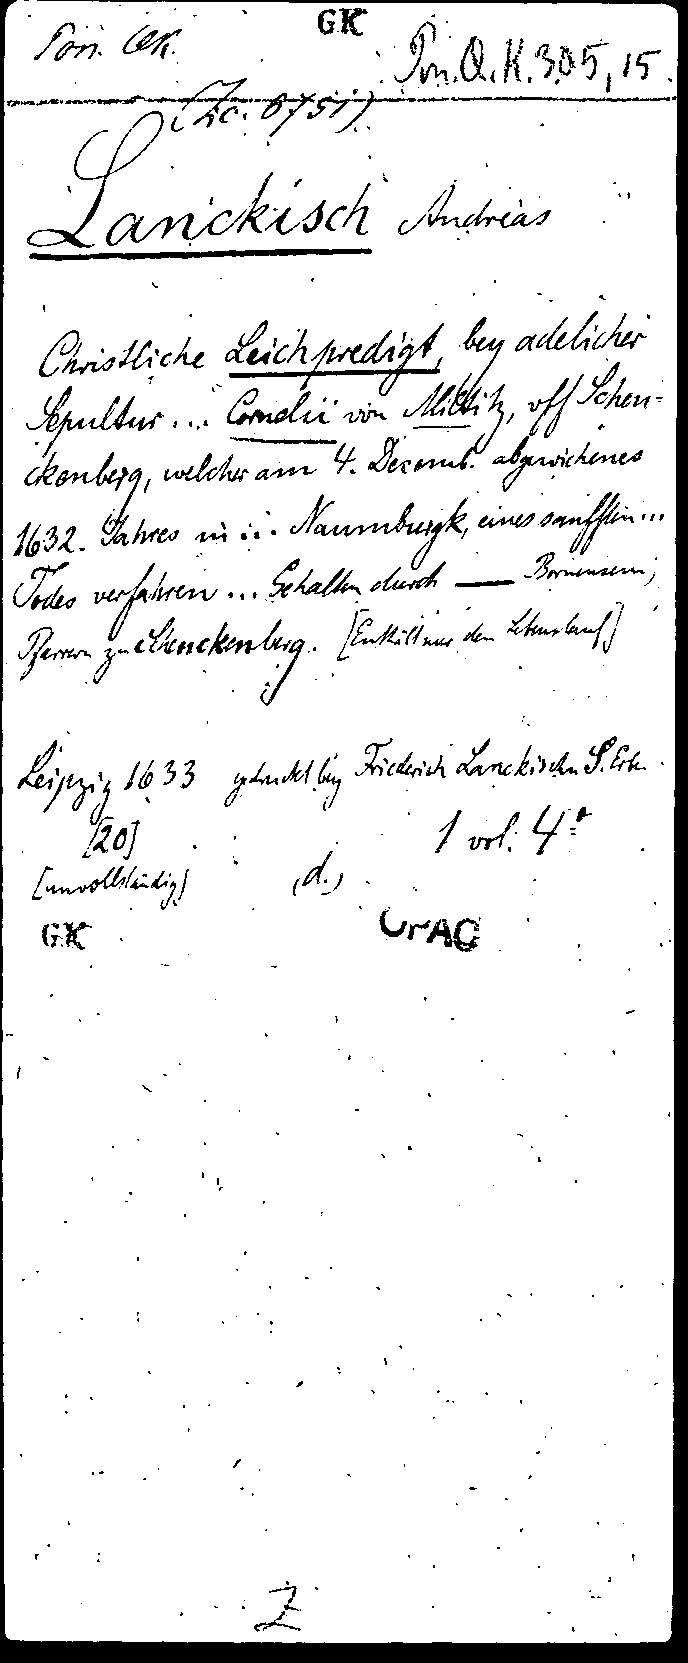 GK
Pon. QK.
Pon. Q. K. 305, 15.
(Zc. 6751)
Lanckisch Andreas
Christliche Leichpredigt, bey adelicher
Sepultur ... Cornelii von Miltitz, uff Schen-
ckenberg, welcher am 4. Decemb. abgewichenes
1632. Jahres in ... Naumburgk, eines sanfften ...
Todes verfahren ... Gehalten durch —
Pfarrern zu Schenckenberg. [Enthält nur den Lebenslauf]
Leipzig 1633 gedruckt bey Friederich Lanckischen S. Erb.
[20] 1 vol. 4°
[unvollständig] (d.)
GK UrAC
Z